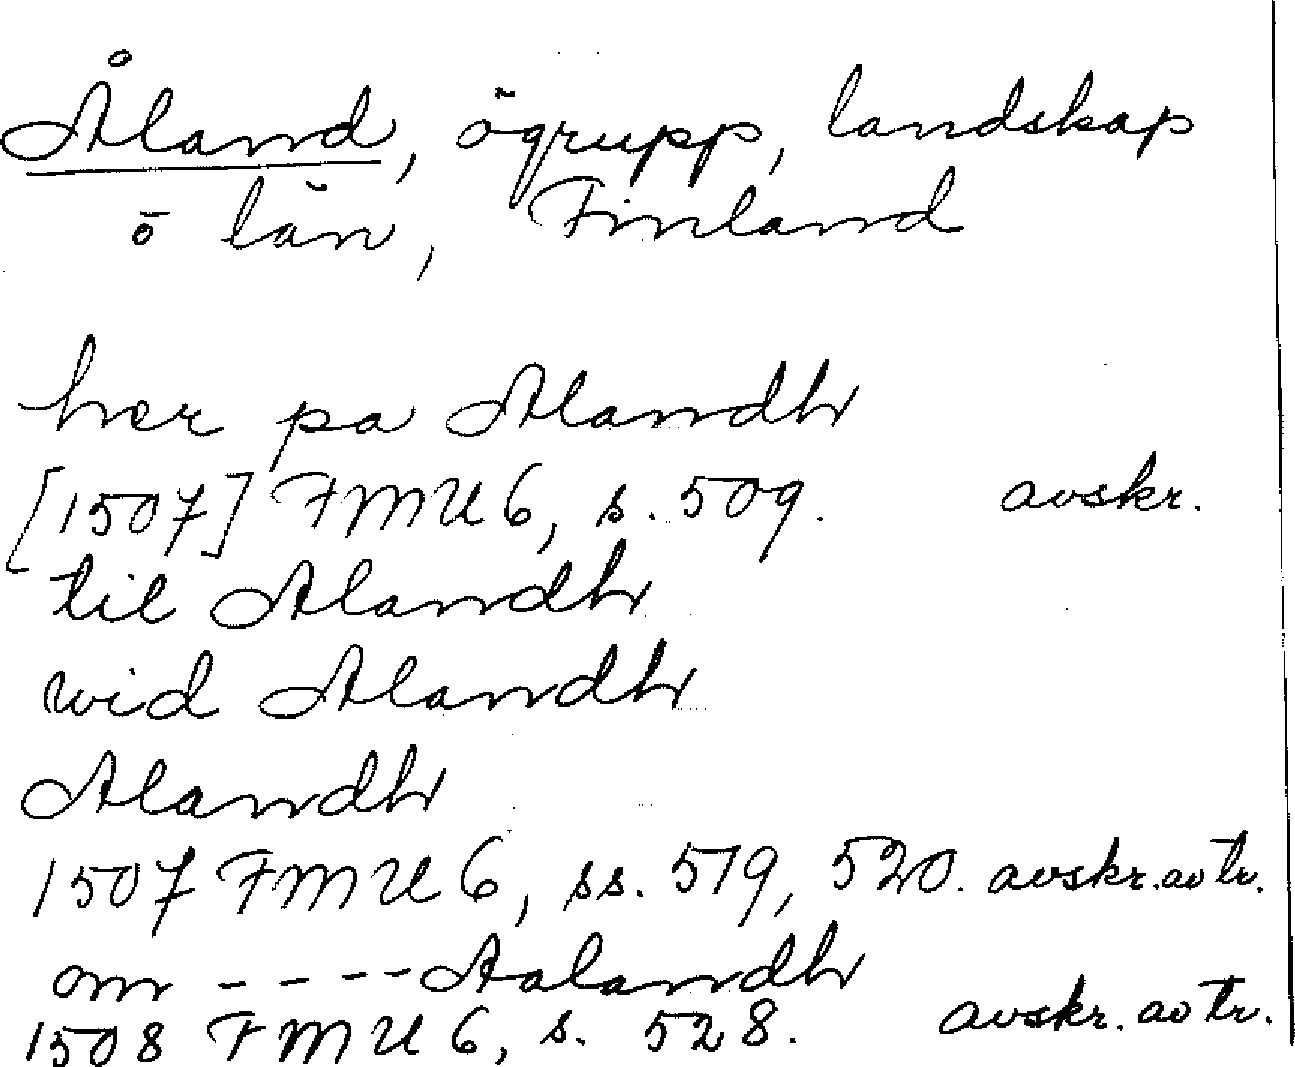 Åland, ögrupp, landskap
o län, Finland
her pa Alandh
[1507] FMU 6, s. 509. avskr.
til Alandh
wid Alandh
Alandh
1507 FMU 6, ss. 519, 520. avskr. av tr.
om - - - - Aalandh
1508 FMU 6, s. 528. avskr. av tr.